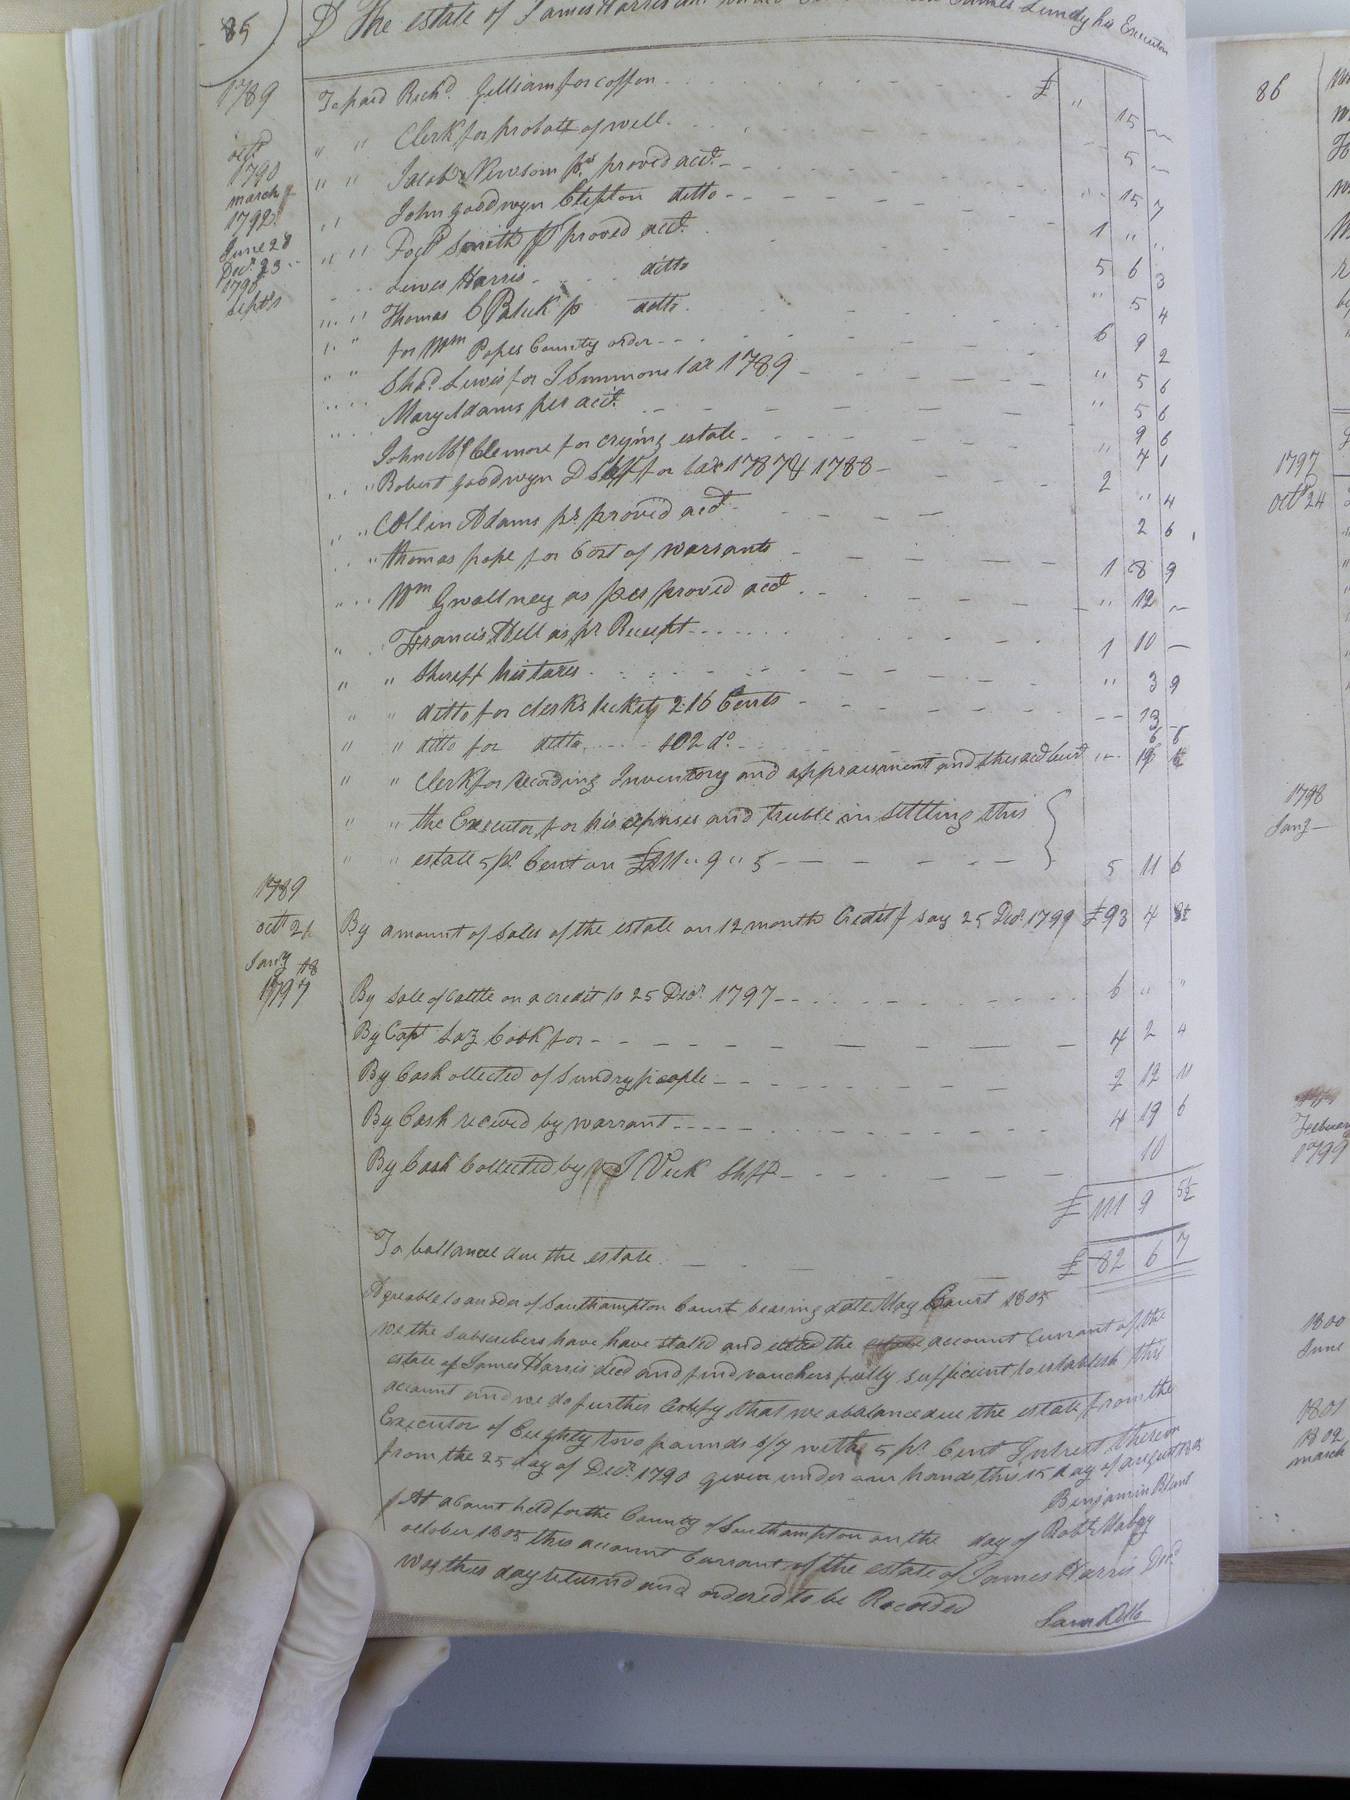 85
Dr The estate of James Harris James Lundy his Executor
1789 To paid Richd. Gilliam for coffen £ " 15 —
" " Clerk for probate of will 5 —
octr 1790 " " Jacob Newsom pr. proved acct. 15 7
march 1792 " John goodwyn Clepton ditto 1 " "
June 28 " " Smith pr proved acct. 5 6 3
Decr. 23 Lewes Harris ditto " 5 4
Septr " " Thomas C ditto 6 9 2
" " for Wm Popes County order " 5 6
" " Shad. Lewis for J Simmons tax 1789 " 5 6
Mary Adams per acct. 9 6
John McClemore for crying estate " 4 1
" " Robert goodwyn D Shff for tax 1787 & 1788 2 " 4
Collin Adams pr proved acct. 2 6
" " thomas pope for Cost of warrants 1 8 9
" " Wm Gwaltney as per proved acct. " 12 —
" " Francis Bell as pr. Receipt 1 10 —
" " Shereff his taxes " 3 9
" " ditto for clerks tickets 216 Cents 13
" " ditto for ditto 102 do. 6 6
" " Clerk for recording Inventory and appraisment and
" " the Executor for his expenses and truble in settling this
" " estate 5 pr. Cent on £111 " 9 " 5 5 11 6
1789
octr 21 By amount of sales of the estate on 12 month Credit say 25 Decr. 1799 £93 4
Jany 18
1797 By sale of Cattle on a credit to 25 Decr. 1797 6 " "
By Capt Laz Cook for 4 2 "
By Cash ollected of Sundry people 2 12 11
By Cash received by warrant 4 19 6
By Cash Collected by J Vick Shff 10
£ 111 9 5½
To ballance due the estate £ 82 6 7
Agreable to an oder of Southampton Court bearing date May Court 1805
we the Subscribers have have stated and the account Currant of the
estate of James Harris decd and find vouchers fully sufficient to establish this
account and we do further Certify that we a balance due the estate from the
Executor of Eeighty two pounds 6/7 with 5 pr. Cent Intrest thereon
from the 25 day of Decr. 1790 given under our hands this 15 day of august 1805
Benjamin Blunt
Robt Mabry
At a Court held for the County of Southampton on the day of
october 1805 this account Currant of the estate of James Harris Decd
was this day returnd and ordered to be Recorded
Sam Kello
86
1797
octr 24
1798
Jany
February
1799
1800
June
1801
1802
march